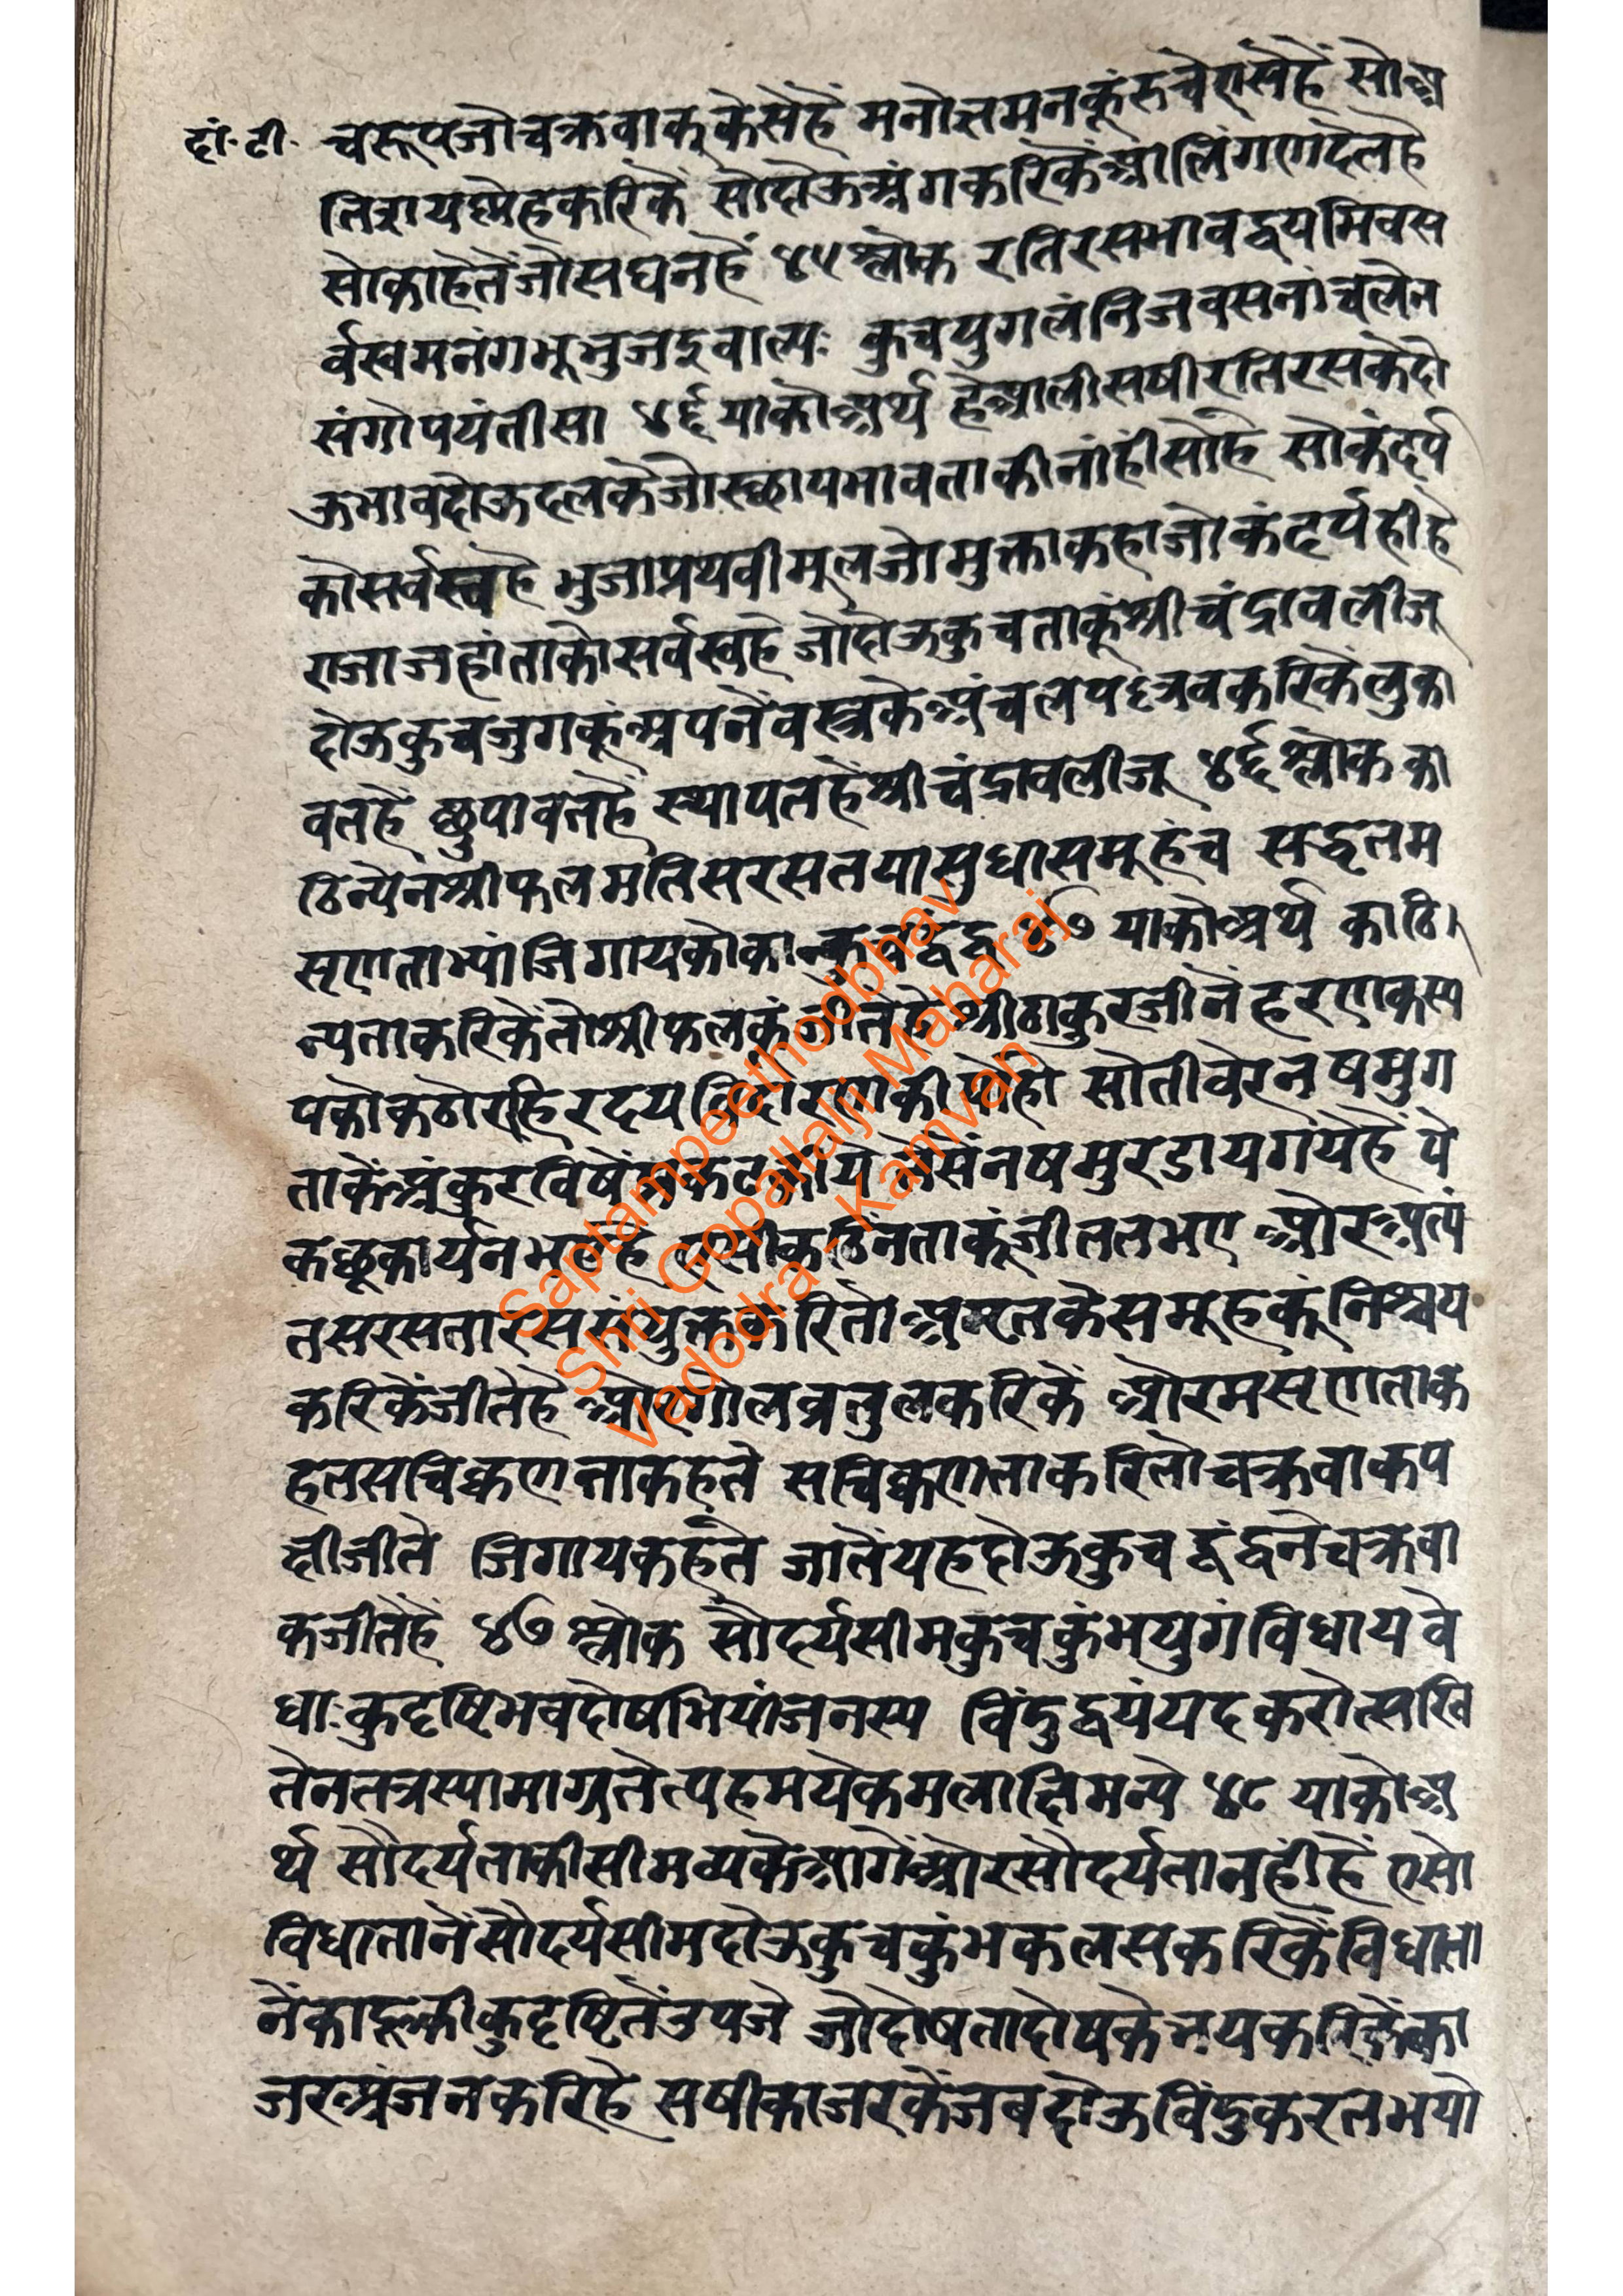 दां. टी.
चरूपजोचक्रवाककेसेहैं मनोत्तमनकूंरुचेएसेहैं सोअ
तिशयष्नेहकरिकें सोदोऊअंगकरिकेंआलिंगणदेतहै
सोकाहेतेंजोसघनहैं ४५ श्लोक रतिरसभावद्वयमिवस
र्वस्वमनंगभूभुजइवाल्यः कुचयुगलंनिजवसनांचलेन
संगोपयंतीसा ४६ याकोअर्थ हेआलीसषीरतिरसकेदो
ऊभावदोऊदलकेजोस्छायभावताकीनांहींसोहै सोकंदर्प
कोसर्वस्वहै भुजाप्रथवीमूलजोमुक्ताकहाजोकंदर्पहीहै
राजाजहांताकोसर्वस्वहै जोदोऊकुचताकूंश्रीचंद्रावलीजू
दोऊकुचजुगकूंअपनेंवस्त्रकेअंचलपल्लवकरिकेंलुका
वतहैं छुपावतहैं स्थापतहैंश्रीचंद्रावलीजू ४६ श्लोक का
ठिन्येनश्रीफलमतिसरसतयासुधासमूहंच सद्वृतम
सृणताभ्यांजिगायकोकान्कुचद्वंद्व ४७ याकोअर्थ काठि
न्यताकरिकेंतोश्रीफलकूंजीतेहैंश्रीठाकुरजीनें हरणकस्य
पकोकठोरहिरदयविदारणकीयोहो सोतीवेरनषमुग
ताकेंअंकुरविषें
कछूकार्यनभएहै एसीकठिनताकूंजीततभए औरअत्यं
तसरसतारससंयुक्तकरितोअमृतकेसमूहकूंनिश्चय
करिकेंजीतेहै औरगोलव्रतुलकरिकें औरमसृणताक
हतसचिक्कणताकहते सचिक्कणताकरितोचक्रवाकप
क्षीजीते जिगायकहते जातेंयहदोऊकुच द्वंद्वनेचक्रवा
कजीतेहैं ४७ श्लोक सौदर्यसीमकुचकुंभयुगंविधायवे
धाःकुदृष्टिभवदोषभियांजनस्य विंदुद्वयंयदकरोत्सखि
तेनतत्रस्यामाग्रतेत्यहमयेकमलाक्षिमन्ये ४८ याकोअ
र्थ सौदर्यताकीसीमव्यकेआगेंऔरसौदर्यतानहींहैं एसो
विधातानेंसौदर्यसीमदोऊकुचकुंभकलसकरिकेंविधाता
नेंकाहूकीकुदृष्टितेंउपजे जोदोषतादोषकेभयकरिकेंका
जरअंजनकरिहै सषीकाजरकेंजबदोऊविंदुकरतभयो
Saptampeethodbhav
Shri Gopallalji Maharaj
Vadodra - Kamvan